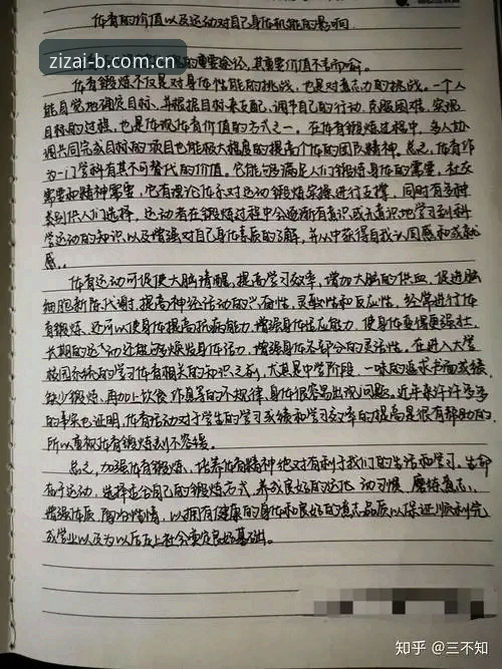 体育的价值以及运动对自己身体机能的影响
zizai-b.com.cn
的重要途径,其重要价值不言而喻。
体育锻炼不仅是对身体性能的挑战,也是对意志力的挑战。一个人
能自觉地确定目标、并根据目标来支配、调节自己的行动,克服困难,实现
目标的过程,也是体现体育价值的方式之一。在体育锻炼过程中,多人协
调共同完成目标的项目也能极大程度的提高个体的团队精神。总之,体育作
为一门学科有其不可替代的价值,它能够满足人们锻炼身体的需要,社交
需要和精神需要,它有理论体系对运动锻炼实操进行支撑,同时有多种
类别供人们选择,运动者在锻炼过程中会逐渐有意识或无意识地学习到科
学运动的知识以及增强对自己身体素质的了解,并从中获得自我认同感和成就
感。
体育运动可促使大脑清醒,提高学习效率,增加大脑的供血,促进脑
细胞新陈代谢,提高神经活动的兴奋性、灵敏性和反应性。经常进行体
育锻炼,还可以使身体提高抗病能力,增强身体适应能力,使身体变得更强壮,
长期的运动还能够焕发身体活力,增强身体各部分的灵活性。在进入大学
校园系统的学习体育相关的知识之前,尤其是中学阶段,一味的追求书面成绩,
缺少锻炼,再加上饮食作息等的不规律,身体很容易出现问题。近年来许许多多
的事实也证明,体育活动对于学生的学习成绩和学习效率的提高是很有帮助的,
所以重视体育锻炼刻不容缓。
总之,加强体育锻炼,培养体育精神绝对有利于我们的生活和学习。生命
在于运动,选择适合自己的锻炼方式,养成良好的运动习惯,磨练意志,
增强体质,陶冶性情,以拥有健康的身体和良好的意志品质以保证顺利完
成学业以及为以后走上社会奠定良好基础。
知乎 @三不知